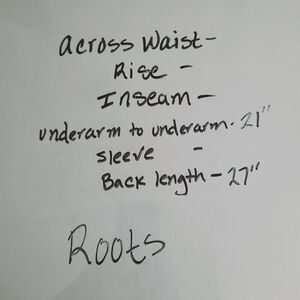 across Waist-
Rise -
Inseam -
underarm to underarm - 21"
sleeve -
Back length - 27"
Roots